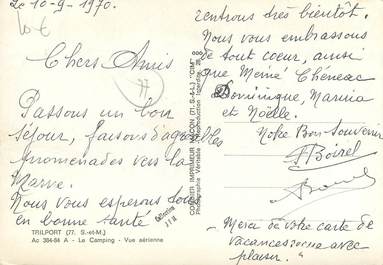 Le 10-9-1970.
10 €
Chers Amis
77
Passons un bon
séjour, faisons d'agréables
promenades vers la
Marne.
Nous vous espérons tous
en bonne santé
TRILPORT (77. S.-et-M.)
Ac 384-84 A - Le Camping - Vue aérienne
COMBIER IMPRIMEUR MACON (71. S.-&-L.) "CIM"
Photographie Véritable - Reproduction Interdite
Collection
rentrons très bientôt.
Nous vous embrassons
de tout coeur, ainsi
que Mémé
Dominique,
et Noëlle.
Notre Bon Souvenir
Boirel
Boirel
- Merci de votre carte de
vacances avec
plaisir."